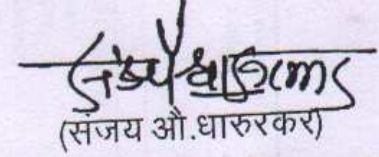 (संजय औ.धारुरकर)